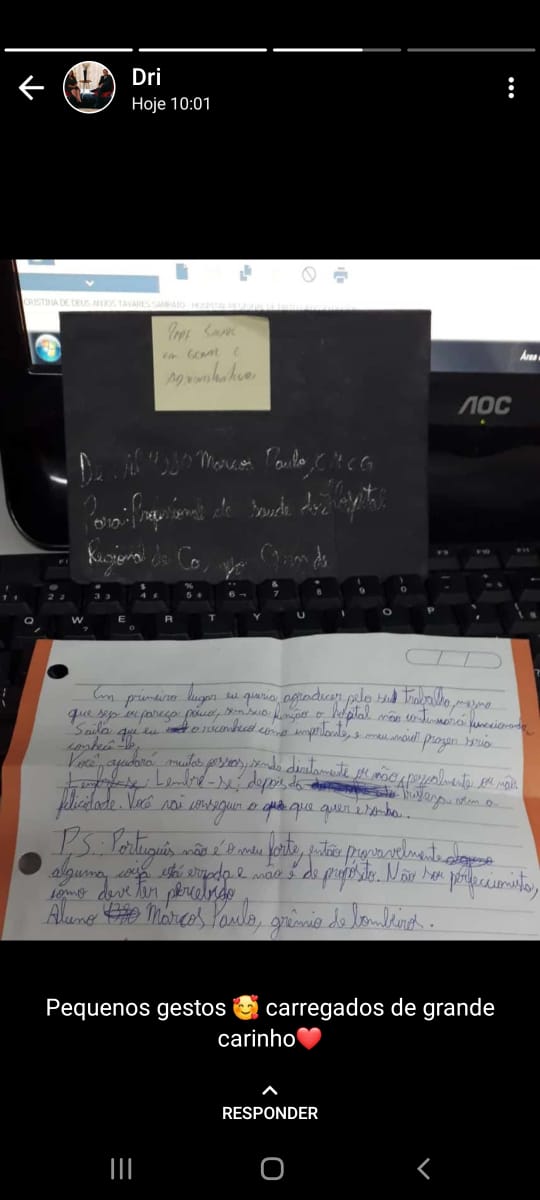 Dri
Hoje 10:01
CRISTINA DE DEUS ANJOS TAVARES SAMPAIO - HOSPITAL REGIONAL DE
Área
AOC
Para
em Geral e
Administrativos
De: Al Marcos Paulo, CMCG
Para: Profissional de saude do Hospital
Regional de
F1 F9 F10 F11
Q W E R T Y U I O P
Em primeiro lugar eu queria agradecer pelo seu trabalho, mesmo
que seja ou pareça pouco, sem sua função o hospital não continuará funcionando.
Saiba que eu o reconheço como importante, e meu maior prazer seria
conhecê-lo.
Você, ajudará muitas pessoas, sendo diretamente ou não, pessoalmente ou não
Lembre-se: depois da tristeza vem a
felicidade. Você vai conseguir o que quer e sonha.
P.S.: Português não é o meu forte, então provavelmente
alguma coisa está errada e não é de propósito. Não sou perfeccionista,
como deve ter percebido
Aluno Marcos Paulo, grêmio de bombeiros.
Pequenos gestos 🥰 carregados de grande
carinho❤️
RESPONDER